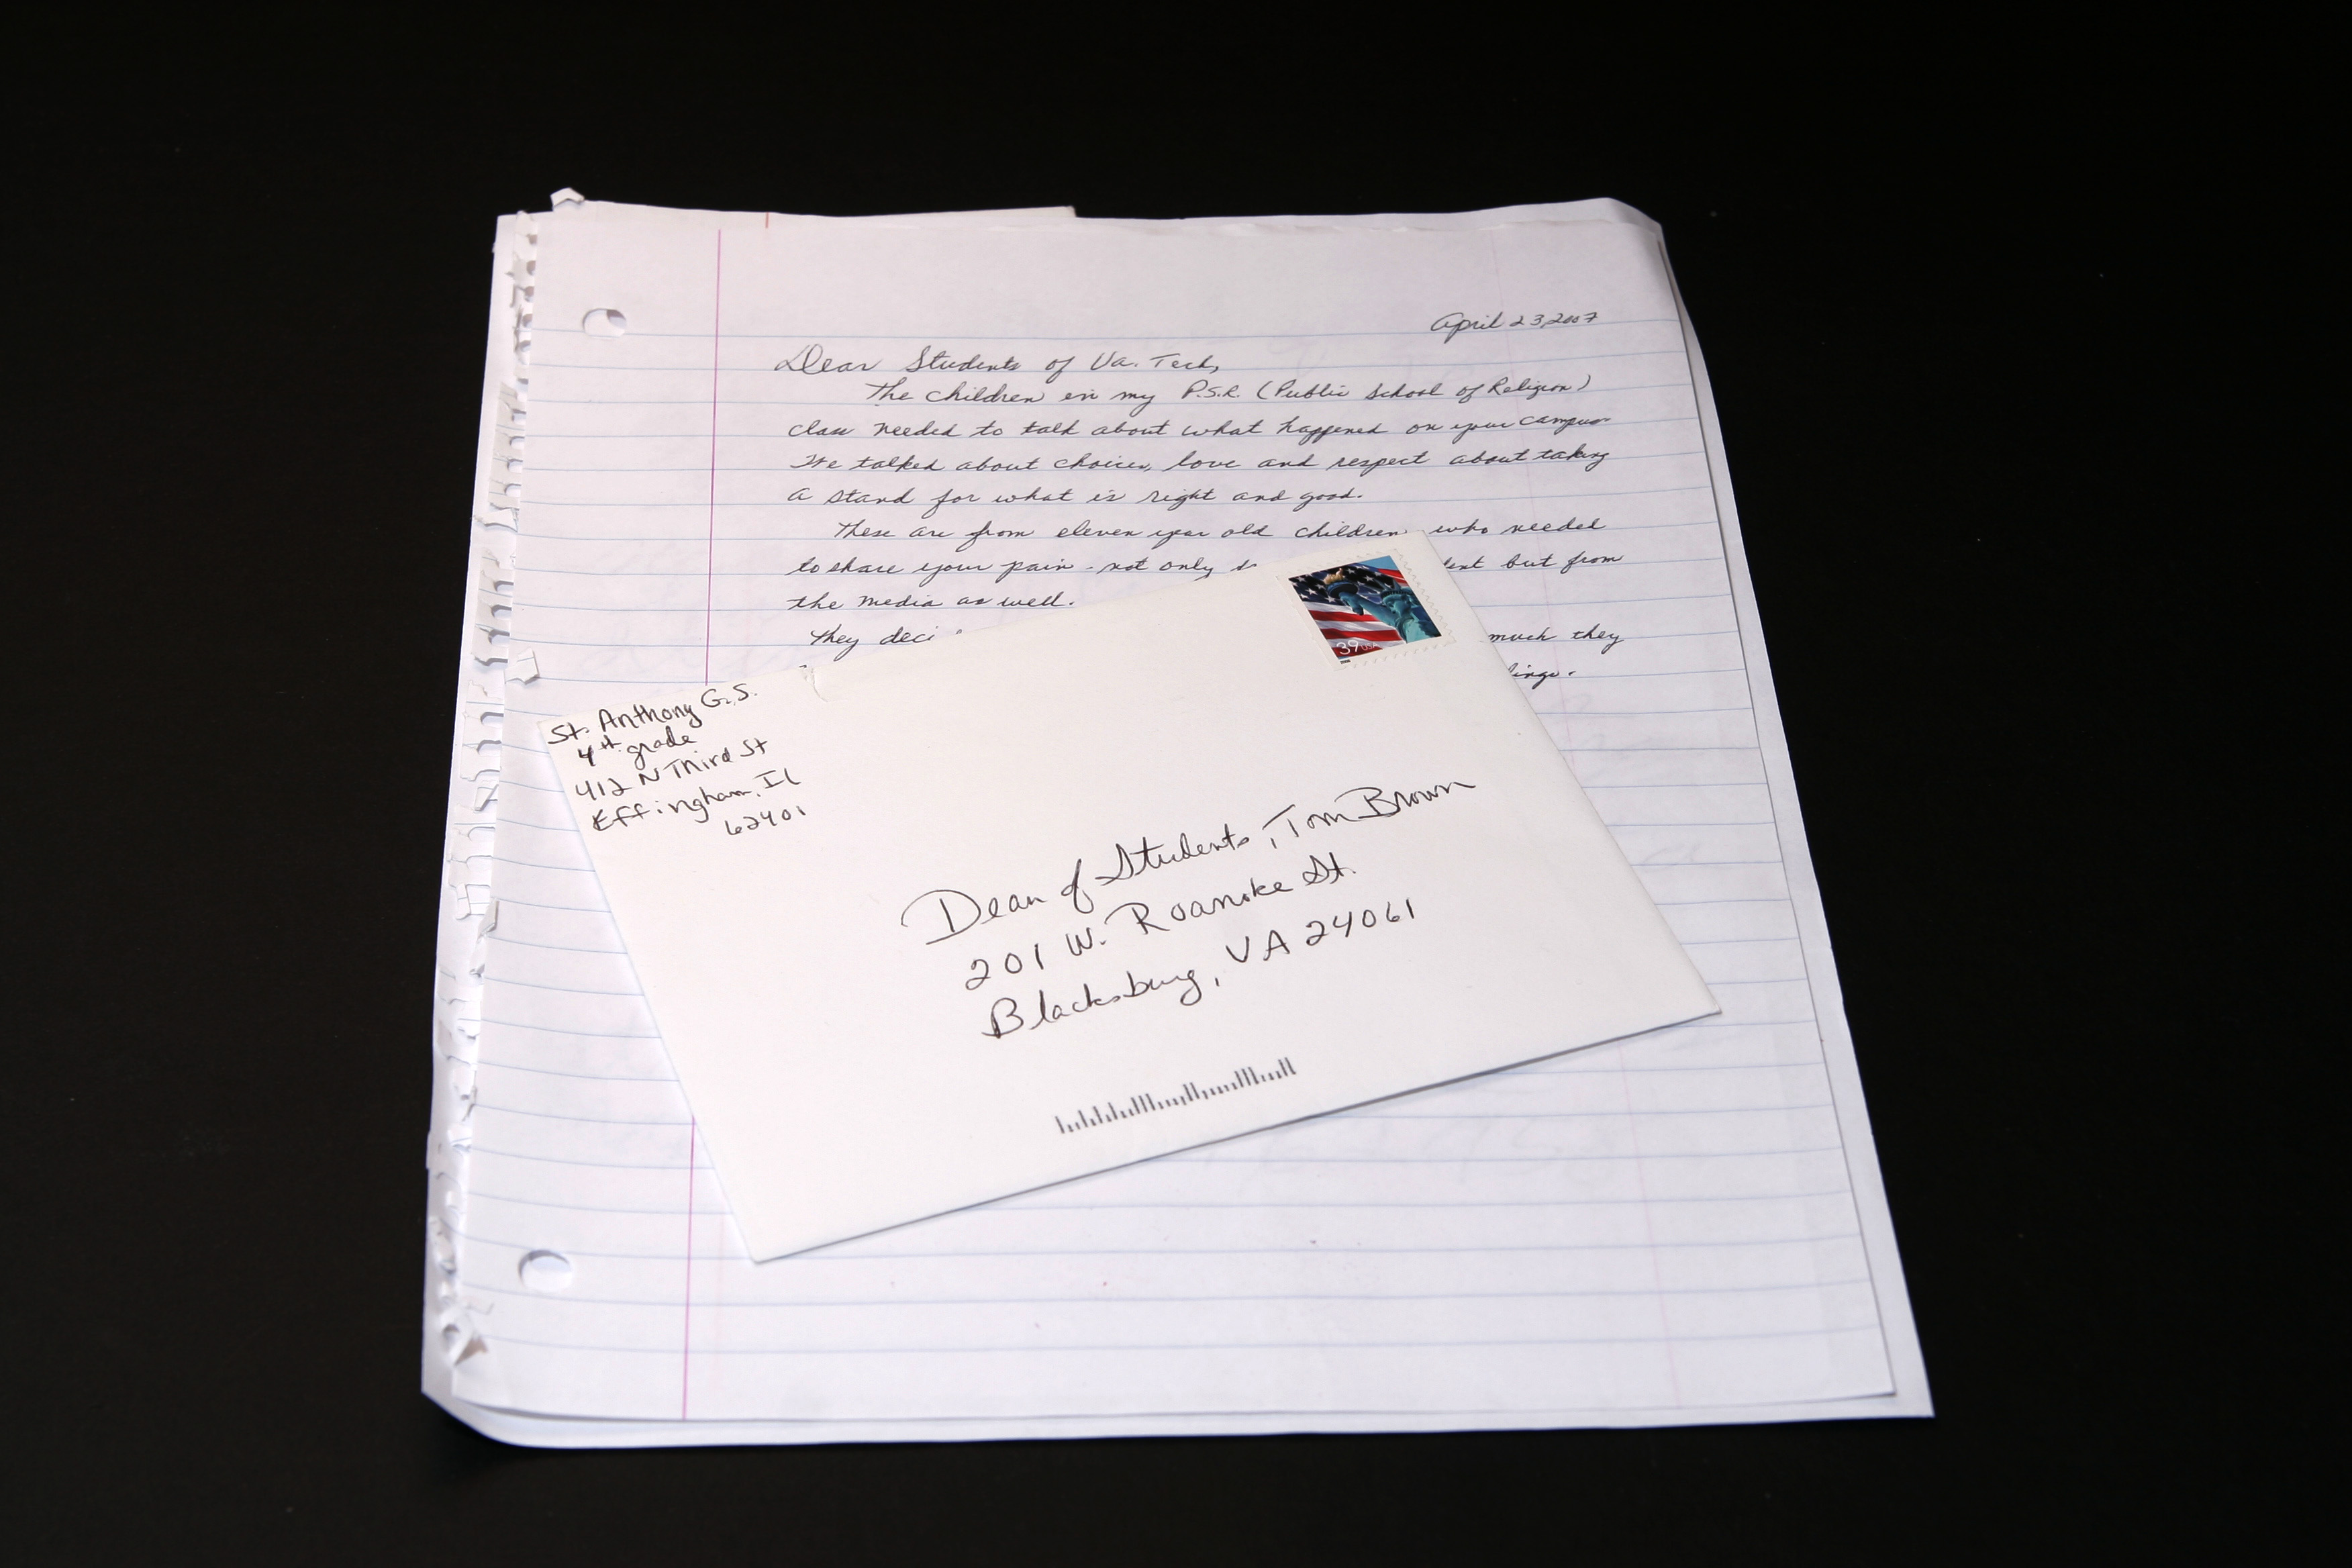 April 23, 2007
Dear Students of Va. Tech,
The children in my P.S.R. (Public School of Religion)
class needed to talk about what happened on your campus
We talked about choices, love and respect about taking
a stand for what is right and good.
These are from eleven year old children who needed
to share your pain - not only but from
the media as well.
They much they
St. Anthony G.S.
4th grade
412 N Third St
Effingham, IL
62401
39 USA
Dean of Students, Tom Brown
201 W. Roanoke St.
Blacksburg, VA 24061